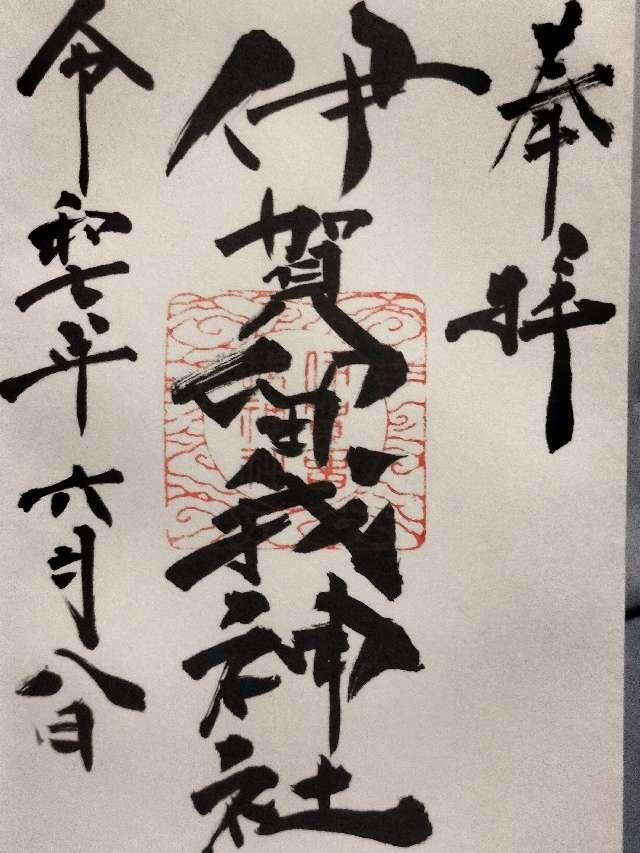 奉拝
伊賀留我神社
令和七年六月八日